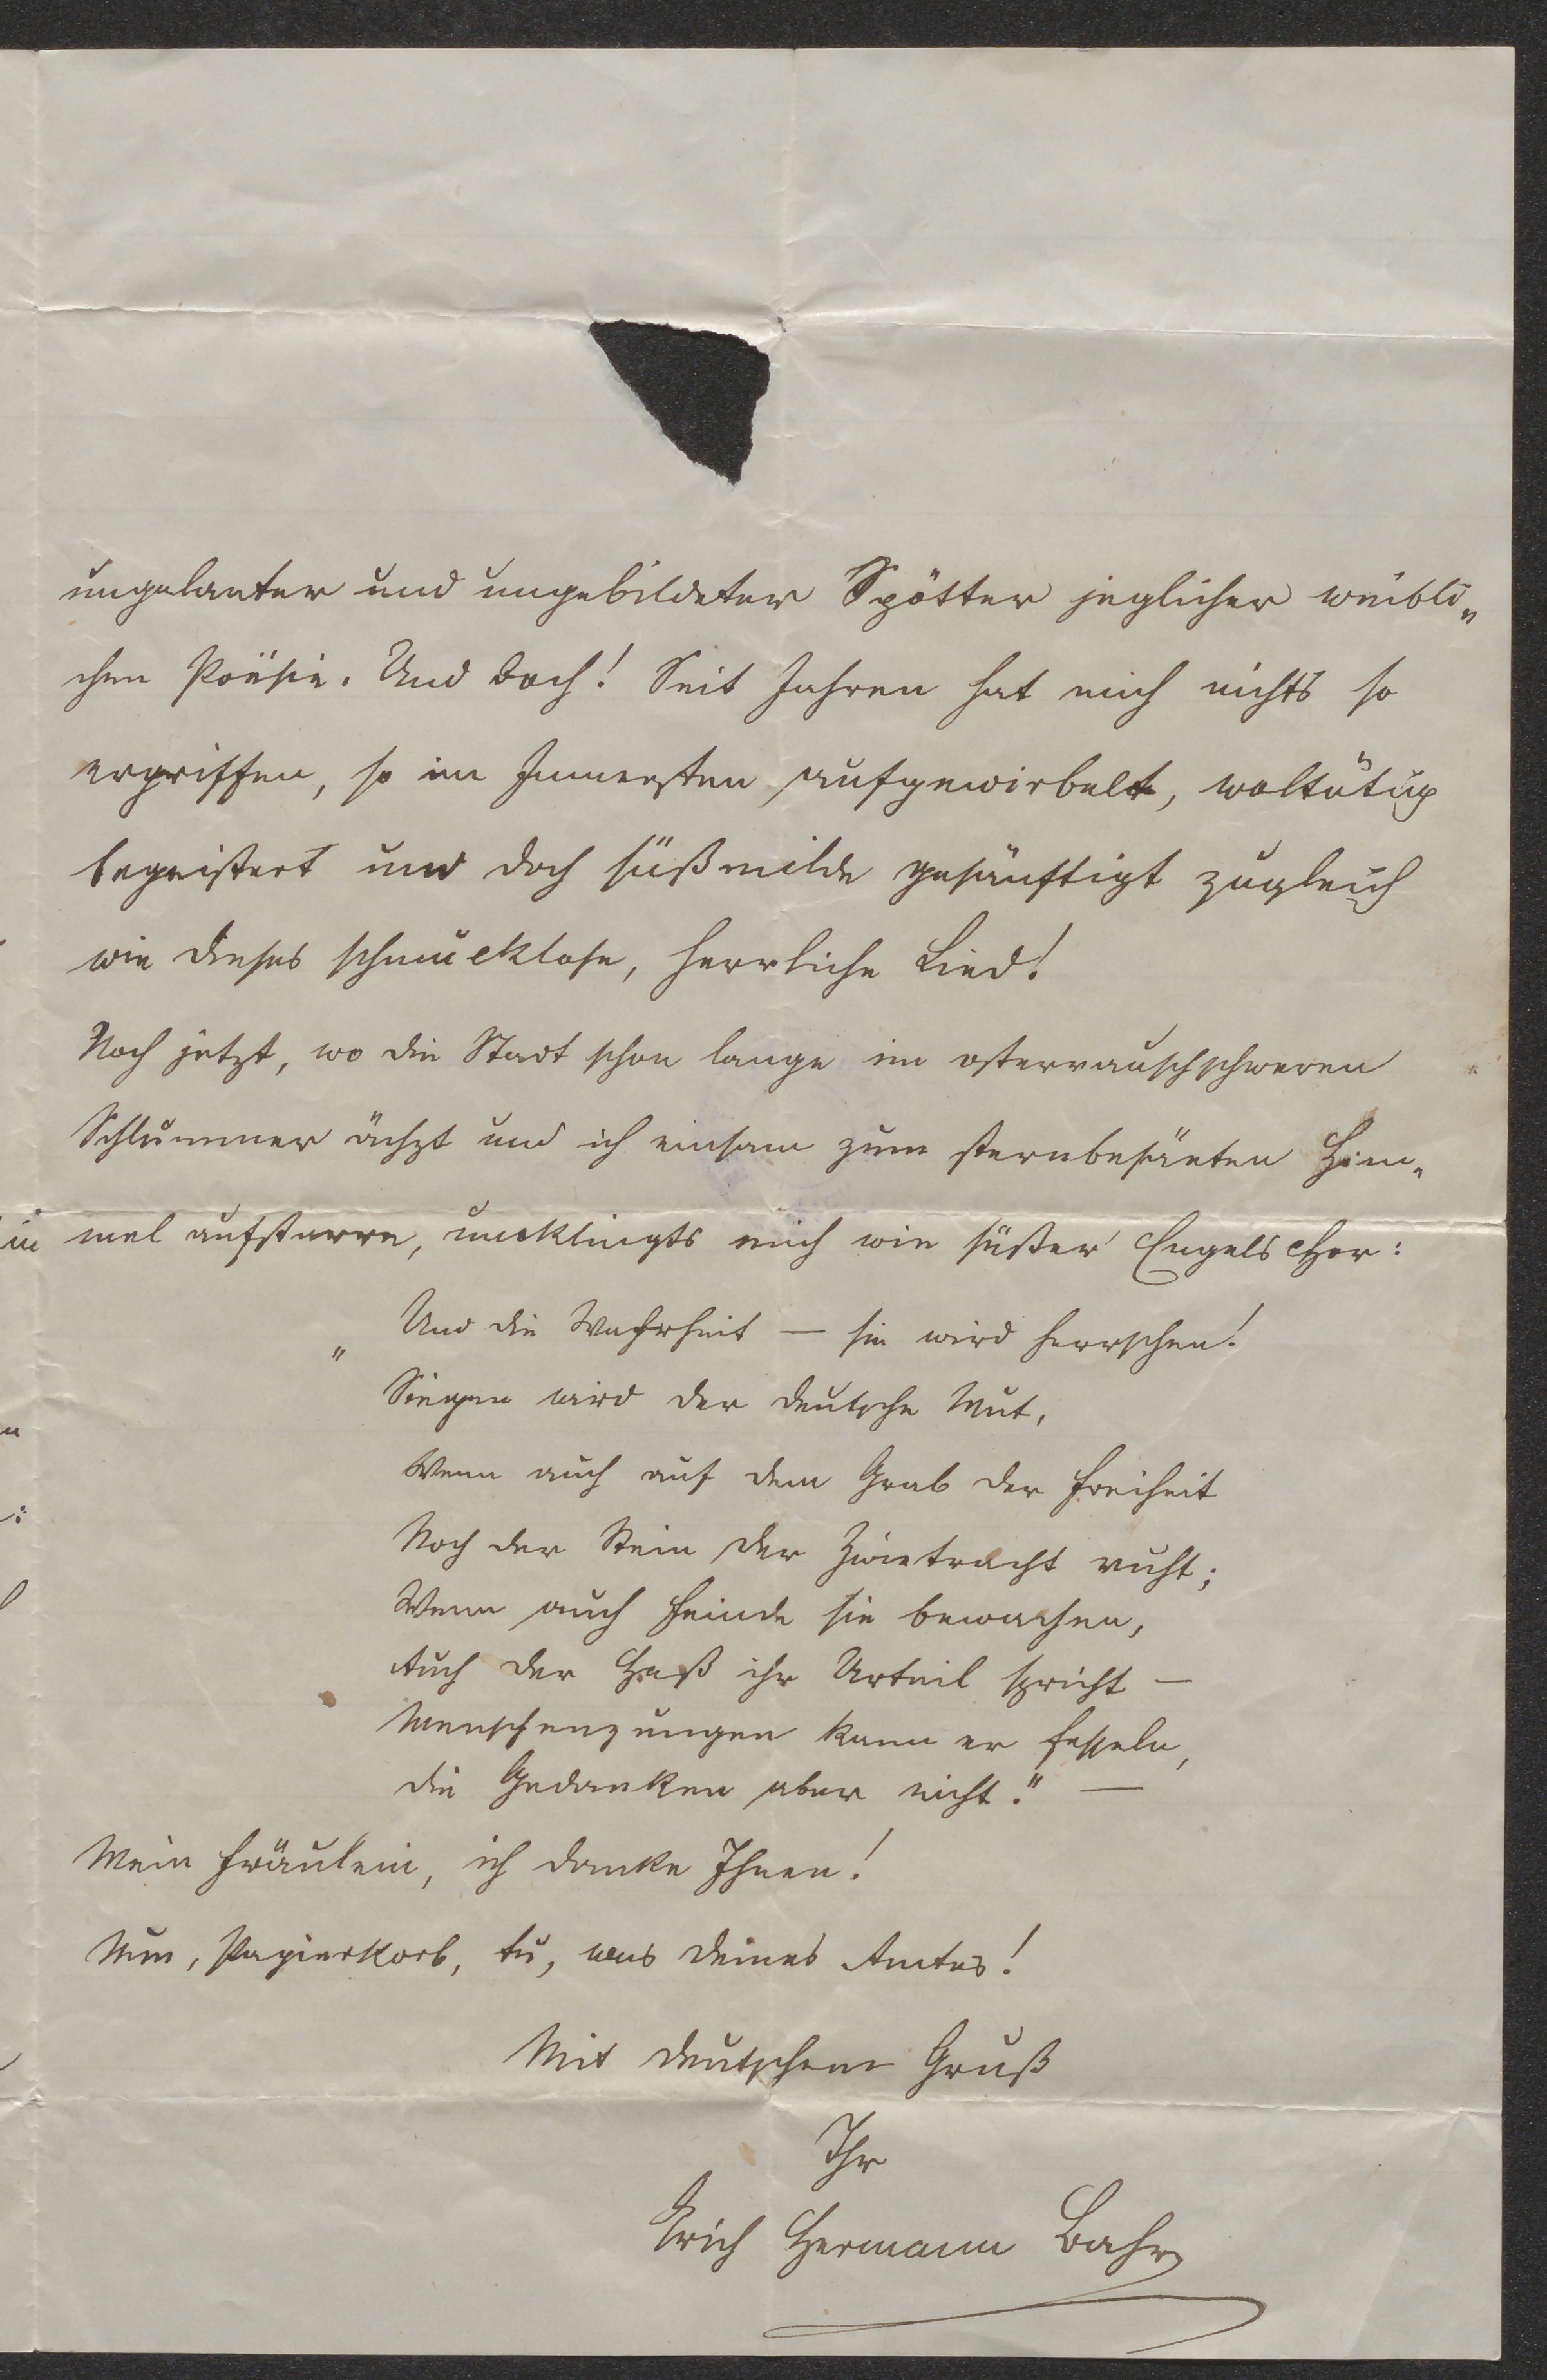 ungalanter und ungebildeter Spötter jeglicher weibli„
chen Poësie. Und doch! Seit Jahren hat mich nichts so
ergriffen, so im Innersten aufgewirbelt, woltätig
begeistert und doch süßmilde gesänftigt zugleich
wie dieses schmucklose, herrliche Lied!
Noch jetzt, wo die Stadt schon lange im osterrauschschweren
Schlummer ächzt und ich einsam zum sternbesäeten Him„
mel aufstarre, umklingts mich wie süßer Engelschor:
„Und die Wahrheit — sie wird herrschen!
Siegen wird der deutsche Mut,
Wenn auch auf dem Grab der Freiheit
Noch der Stein der Zwietracht ruht;
Wenn auch Feinde sie bewachen,
Auch der Haß ihr Urteil spricht —
Menschenzungen kann er fesseln,
die Gedanken aber nicht." —
Mein Fräulein, ich danke Ihnen!
Nun, Papierkorb, tu, was deines Amtes!
Mit deutschem Gruß
Ihr
Erich Hermann Bahr